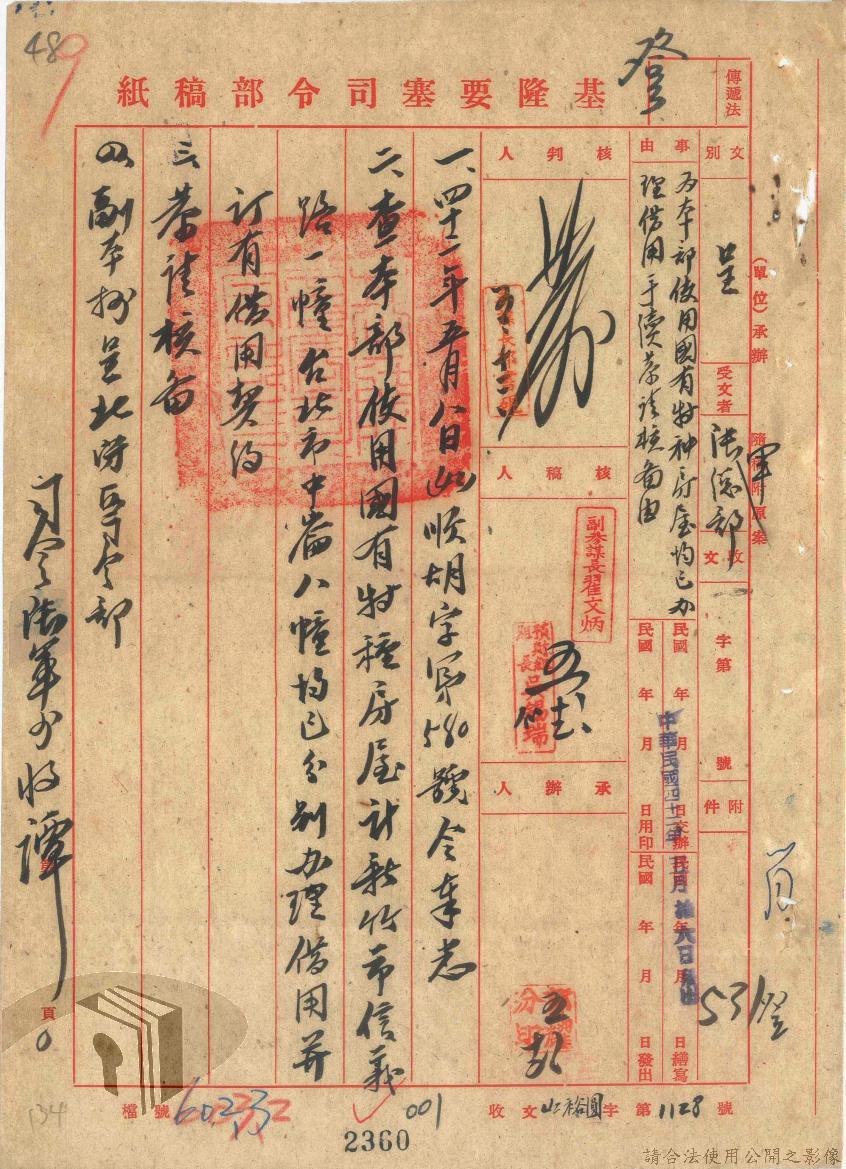 489
登
基隆要塞司令部稿紙
傳遞法
文別
呈
(單位)承辦
受文者
陸總部
隨稿附原案
收文
字第
號
附件
事由
為本部使用國有特種房屋均已辦
理借用手續恭請核備由
民國 年 月 日交辦
民國 年 月 日繕寫
民國 年 月 日用印
民國 年 月 日發出
中華民國四十二年五月拾六日發出
531 登
核判人
核稿人
副參謀長翟文炳
組長吳錫瑞
承辦人
一、四十二年五月八日山順胡字第580號令奉悉
二、查本部使用國有特種房屋計新竹市信義
路一幢台北市中崙八幢均已分別辦理借用並
訂有借用契約
三、恭請核備
四、副本抄呈北防區司令部
司令陸軍少將譚
頁
檔號
001
收文
字第1128號
2360
134
請合法使用公開之影像